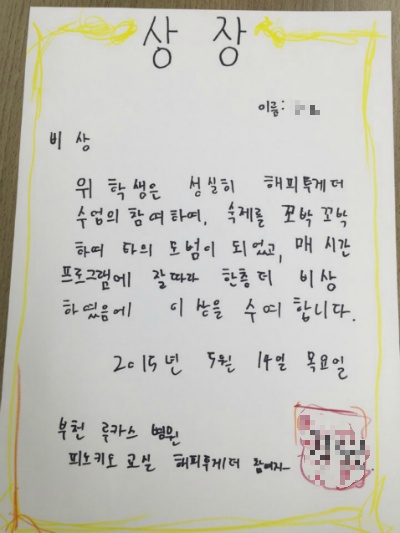 상 장
이름:
비 상
위 학생은 성실히 해피투게더
수업의 참여하며, 숙제를 꼬박꼬박
하며 타의 모범이 되었고, 매 시간
프로그램에 잘따라 한층 더 비상
하였음에 이 상을 수여 합니다.
2015년 5월 14일 목요일
부천 루카스 병원
피노키오 교실 해피투게더 참여자